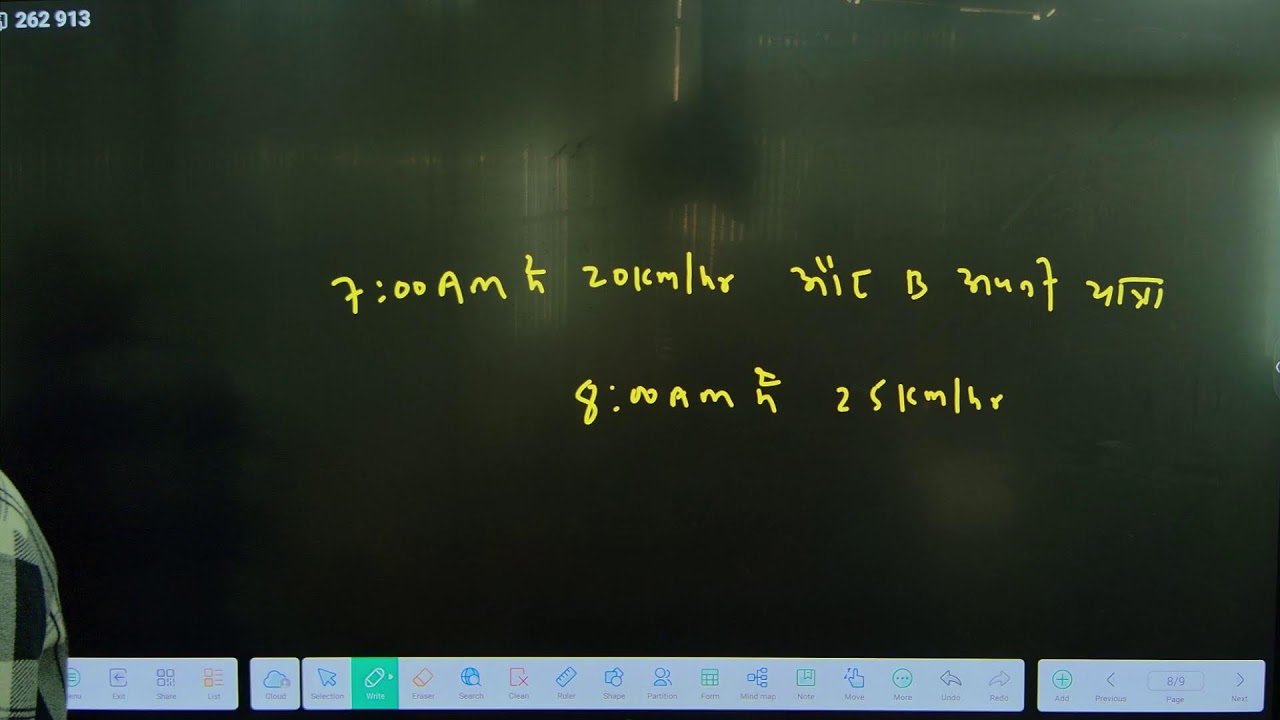 262 913
7:00AM से 20km/hr और B अपनी यात्रा
8:00AM से 25km/hr
Exit Share List Cloud Selection Write Eraser Search Clean Ruler Shape Partition Form Mind map Note Move More Undo Redo Add Previous 8/9 Page Next